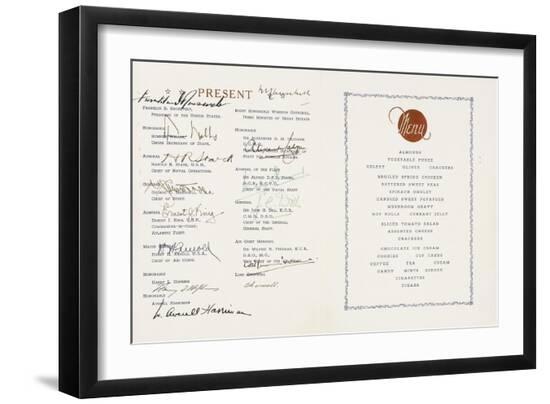 * * PRESENT
Franklin D. Roosevelt
Franklin D. Roosevelt,
President of the United States.
Honorable
Under Secretary of State.
Admiral
H R Stark
Harold R. Stark, U.S.N.
Chief of Naval Operations.
General
Chief of Staff.
Admiral
Ernest J. King
Ernest J. King, U.S.N.
Commander-in-Chief
Atlantic Fleet.
Major
Henry H. Arnold, U.S.A.
Chief of Air Corps.
Honorable
Harry L. Hopkins
Harry L. Hopkins
Honorable
Averell Harriman
W. Averell Harriman
Right Honorable Winston Churchill,
Prime Minister of Great Britain
Honorable
Sir Alexander
Admiral of the Fleet
Sir Alfred D.P.R. Pound,
Chief of the Naval Staff
General
Sir John G. Dill, K.C.B.
C.M.G., D.S.O.
Chief of the General
General Staff.
Air Chief Marshal
Sir Wilfrid R. Freeman, K.C.B.
D.S.O., M.C.
Vice Chief of the
Lord Cherwell
Cherwell
Menu
ALMONDS
VEGETABLE PUREE
CELERY OLIVES CRACKERS
BROILED SPRING CHICKEN
BUTTERED SWEET PEAS
SPINACH OMELET
CANDIED SWEET POTATOES
MUSHROOM GRAVY
HOT ROLLS CURRANT JELLY
SLICED TOMATO SALAD
ASSORTED CHEESE
CRACKERS
CHOCOLATE ICE CREAM
COOKIES CUP CAKES
COFFEE TEA CREAM
CANDY MINTS BONBONS
CIGARETTES
CIGARS